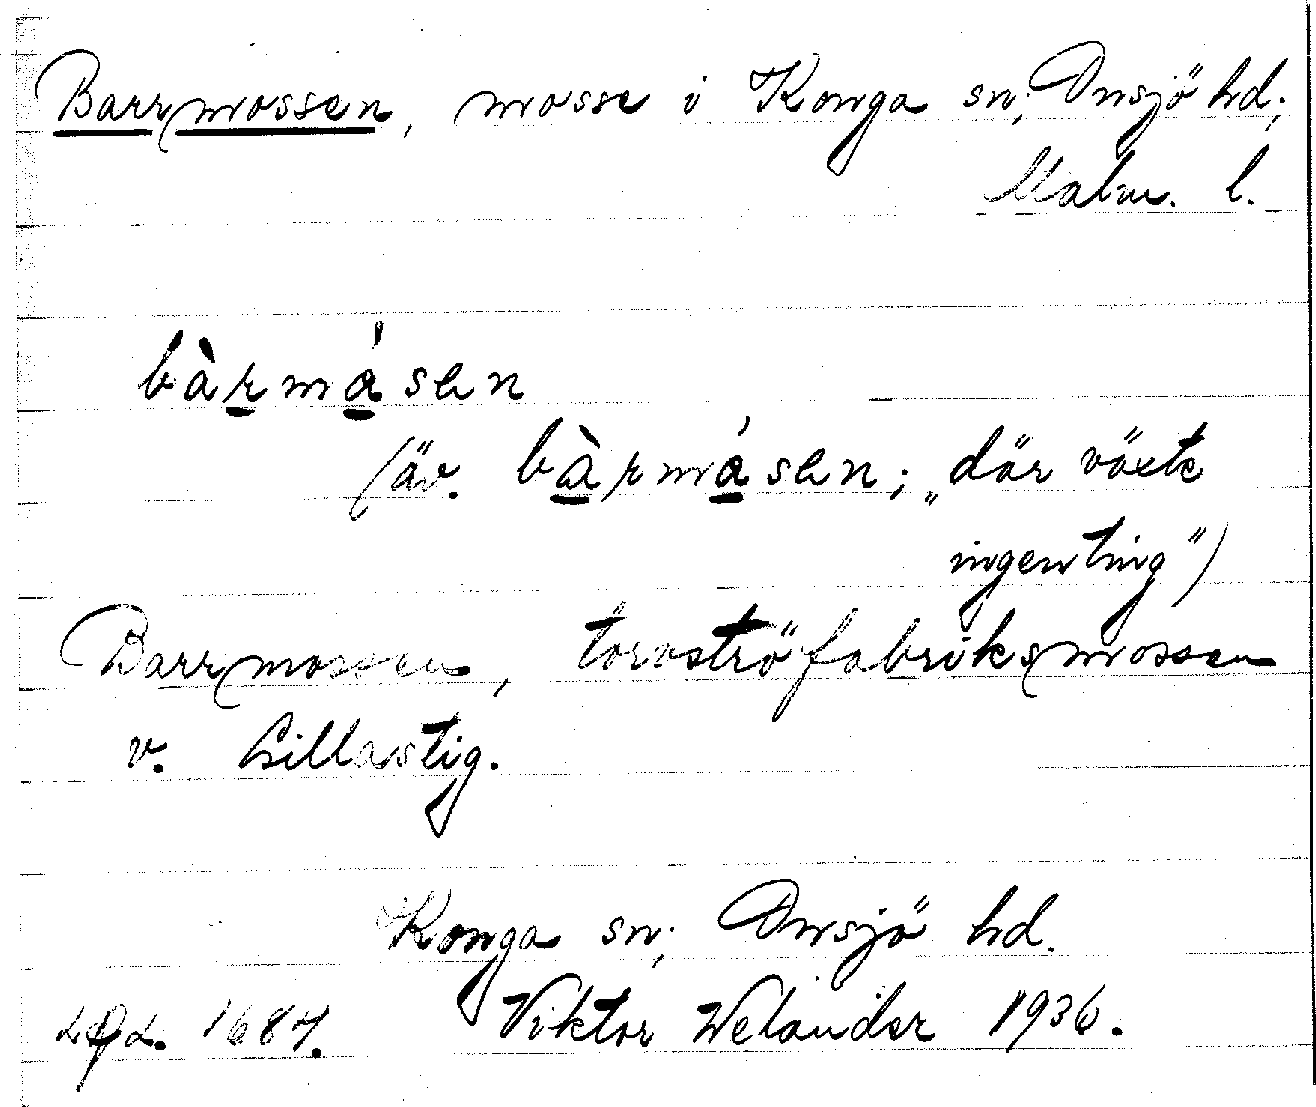 Barrmossen, mosse i Konga sn; Onsjö hd;
Malm. l.
bàrmåsen
(äv. bàrmåsen; „där växte
ingenting")
Barrmossen, torvströfabriksmossen
v. Lillastig.
Konga sn; Onsjö hd.
1684. Viktor Welander 1936.